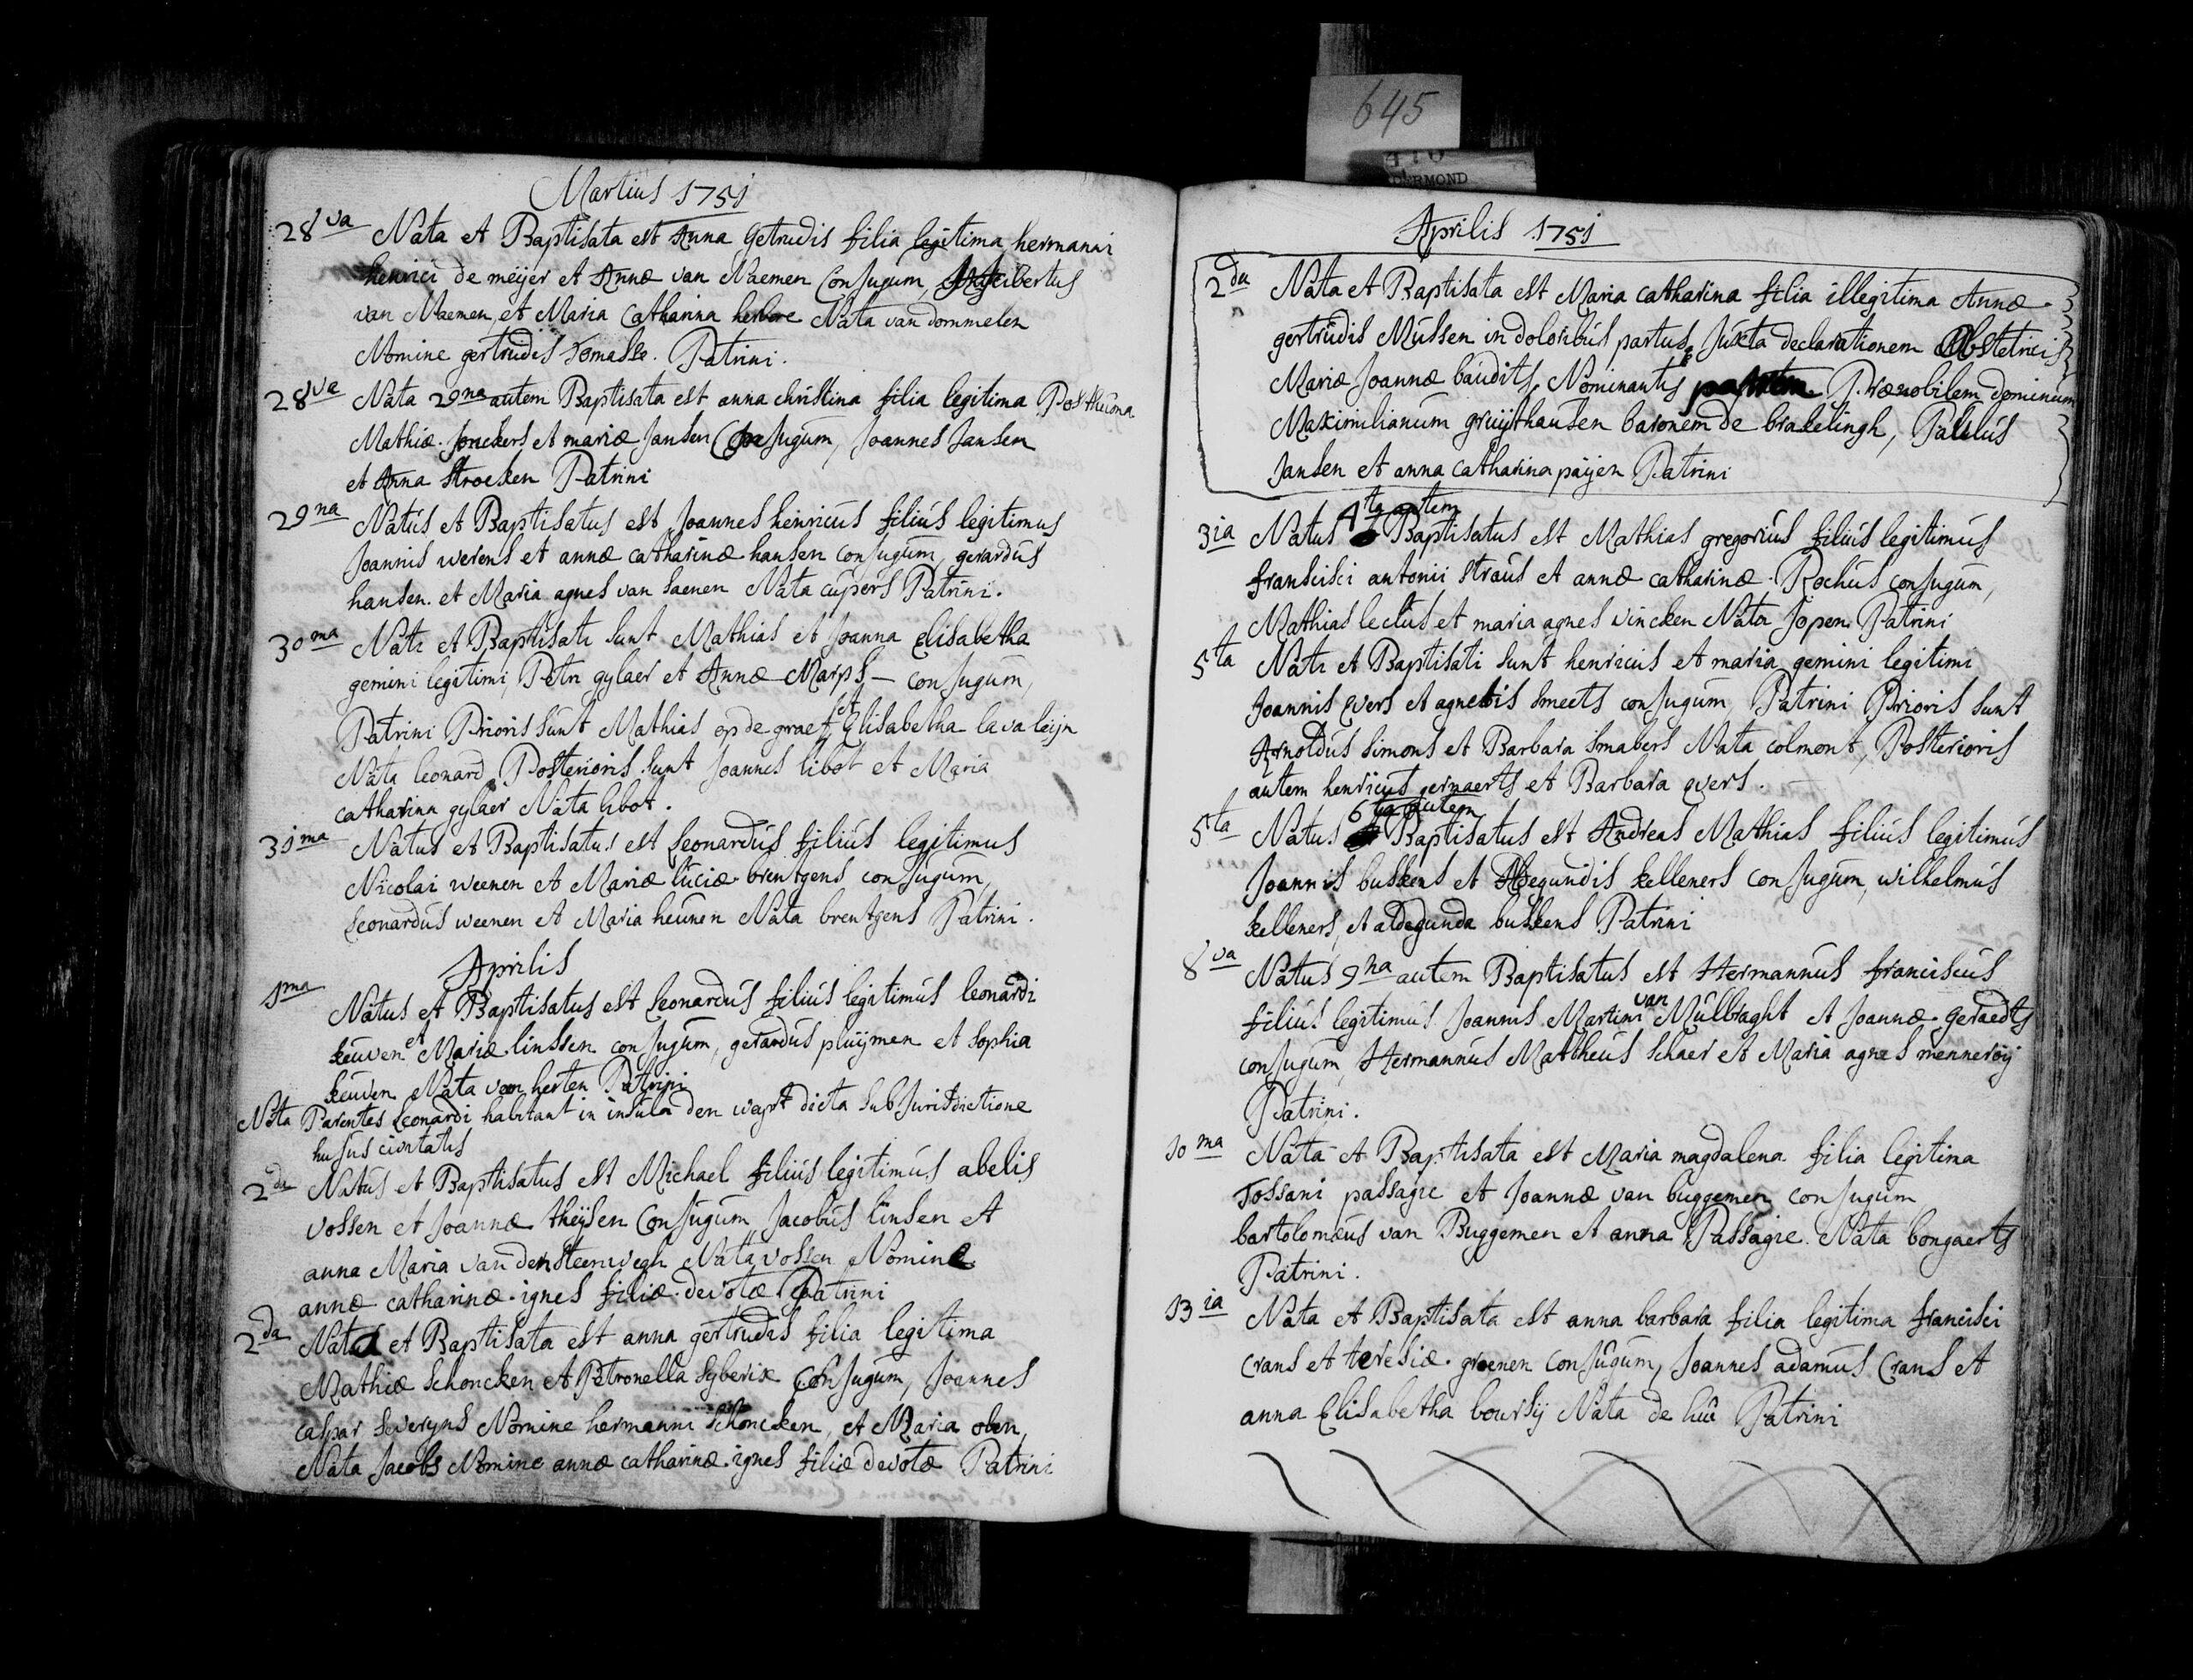 645
Martius 1751
28va Nata et Baptisata est Anna Getrudis filia legitima hermanni
henrici de meijer et Annæ van Naemen Conjugum, Engelbertus
van Naemen, et Maria Catharina Nata van dommelen
Nomine gertrudis Tomasse. Patrini.
28va Nata 29na autem Baptisata est anna christina filia legitima Posthuma
Mathiæ Jonckers et mariæ Jansen Conjugum, Joannes Jansen
et Anna Stroeken Patrini
29na Natus et Baptisatus est Joannes henricus filius legitimus
Joannis werens et annæ catharinæ hansen conjugum, gerardus
hansen. et Maria agnes van saenen Nata cupers Patrini.
30ma Nati et Baptisati sunt Mathias et Joanna Elisabetha
gemini legitimi Petri gylaer et Annæ Marps - conjugum,
Patrini Prioris sunt Mathias op de graef, et Elisabetha lavaleijn
Nata leonard, Posterioris sunt Joannes libot et Maria
catharina gylaer Nata libot.
31ma Natus et Baptisatus est Leonardus filius legitimus
Nicolai weenen et Mariæ luciæ brentgens conjugum,
Leonardus weenen et Maria heunen Nata brentgens Patrini.
Aprilis
1ma Natus et Baptisatus est Leonardus filius legitimus leonardi
keuven et Mariæ linssen conjugum, gerardus pluijmen et sophia
keuven Nata van herten Patrini
Nota Parentes Leonardi habitant in insula den wert dicta sub Jurisdictione
hujus civitatis
2da Natus et Baptisatus est Michael filius legitimus abelis
vossen et Joannæ theijsen Conjugum Jacobus linsen et
anna Maria van den steenwegh Nata vossen Nomine
annæ catharinæ ignes filiæ devotæ Patrini
2da Nata et Baptisata est anna gertrudis filia legitima
Mathiæ schoncken et Petronella syberix Conjugum, Joannes
caspar severijns Nomine hermanni schoncken, et Maria oben
Nata Jacobs Nomine annæ catharinæ ignes filiæ devotæ Patrini
Aprilis 1751
2da Nata et Baptisata est Maria catharina filia illegitima Annæ
gertrudis Mussen in doloribus partus, Juxta declarationem Obstetricis
Mariæ Joannæ baudits, Nominantis patrem Prænobilem dominum
Maximilianum gruijsthausen baronem de brakelingh, Paulus
Jansen et anna catharina paijen Patrini
3ia Natus 4ta autem Baptisatus est Mathias gregorius filius legitimus
fransisci antonii straus et annæ catharinæ Rochus conjugum,
Mathias lectius et maria agnes vincken Nata Jopen Patrini
5ta Nati et Baptisati sunt henricus et maria gemini legitimi
Joannis evers et agnetis smeets conjugum, Patrini Prioris sunt
Arnoldus simons et Barbara smabers Nata colmont, Posterioris
autem henricus gernaerts et Barbara evers.
5ta Natus 6ta autem Baptisatus est Andreas Mathias filius legitimus
Joannis buskens et Aldegundis kelleners conjugum, wilhelmus
kelleners, et aldegunda buskens Patrini
8va Natus 9na autem Baptisatus est Hermannus franciscus
filius legitimus Joannis Martini van Mulbraght et Joannæ geraedts
conjugum, Hermannus Mattheus schaer et Maria agnes menneroij
Patrini.
10ma Nata et Baptisata est Maria magdalena filia legitima
Tossani passagie et Joannæ van buggemen conjugum
bartolomæus van Buggemen et anna Passagie Nata bongaerts
Patrini.
13ia Nata et Baptisata est anna barbara filia legitima francisci
crans et teresiæ groenen conjugum, Joannes adamus Crans et
anna Elisabetha boursij Nata de hue Patrini